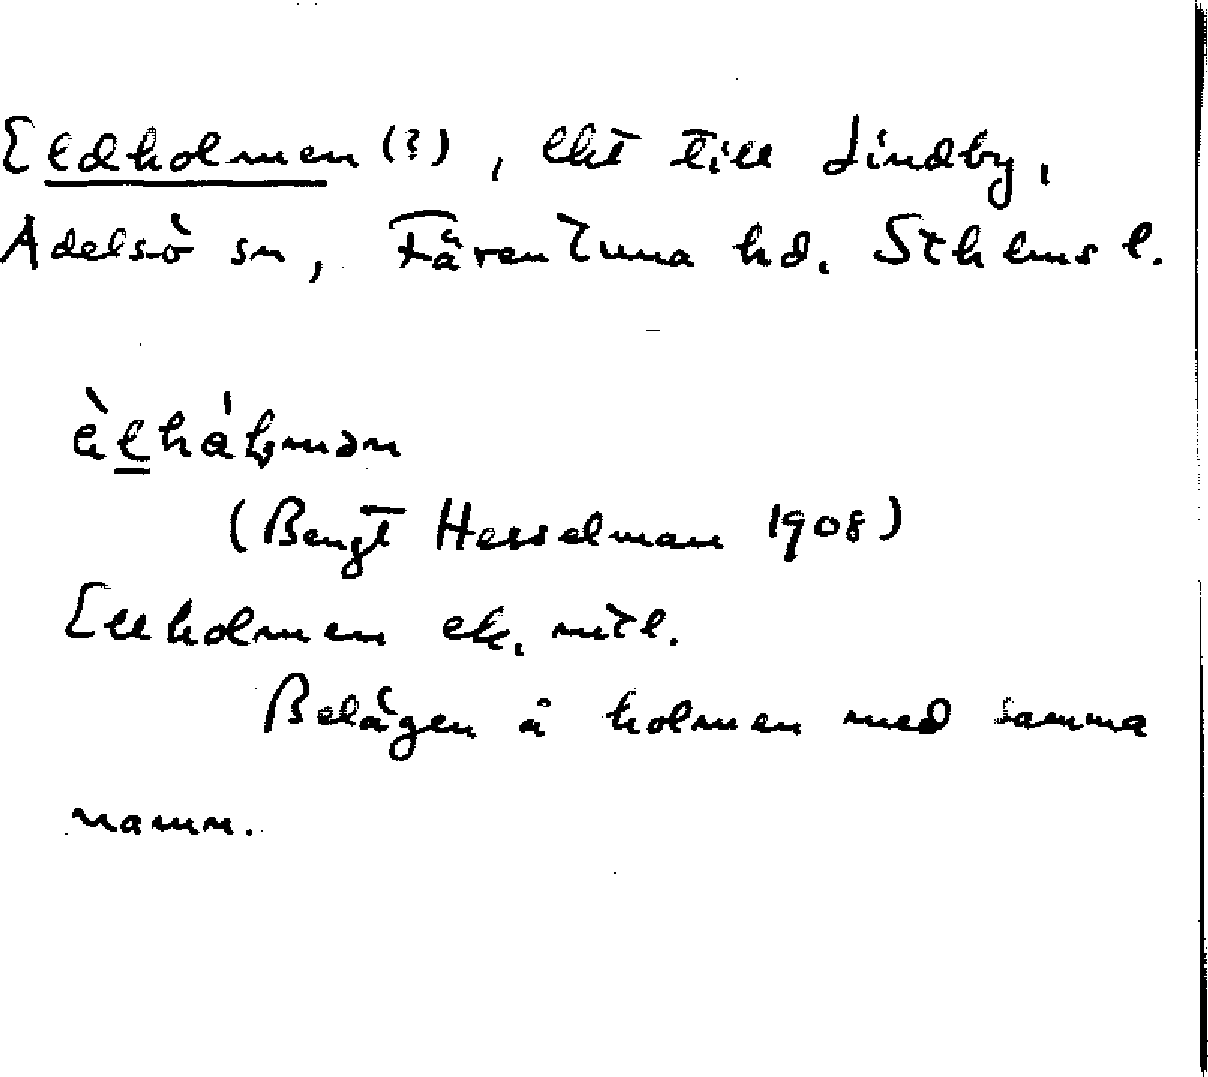 Eldholmen (?), lht till Lindby,
Adelsö sn, Färentuna hd. Sthlms l.
(Bengt Hesselman 1908)
Ellholmen ek. mtl.
Belägen å holmen med samma
namn.